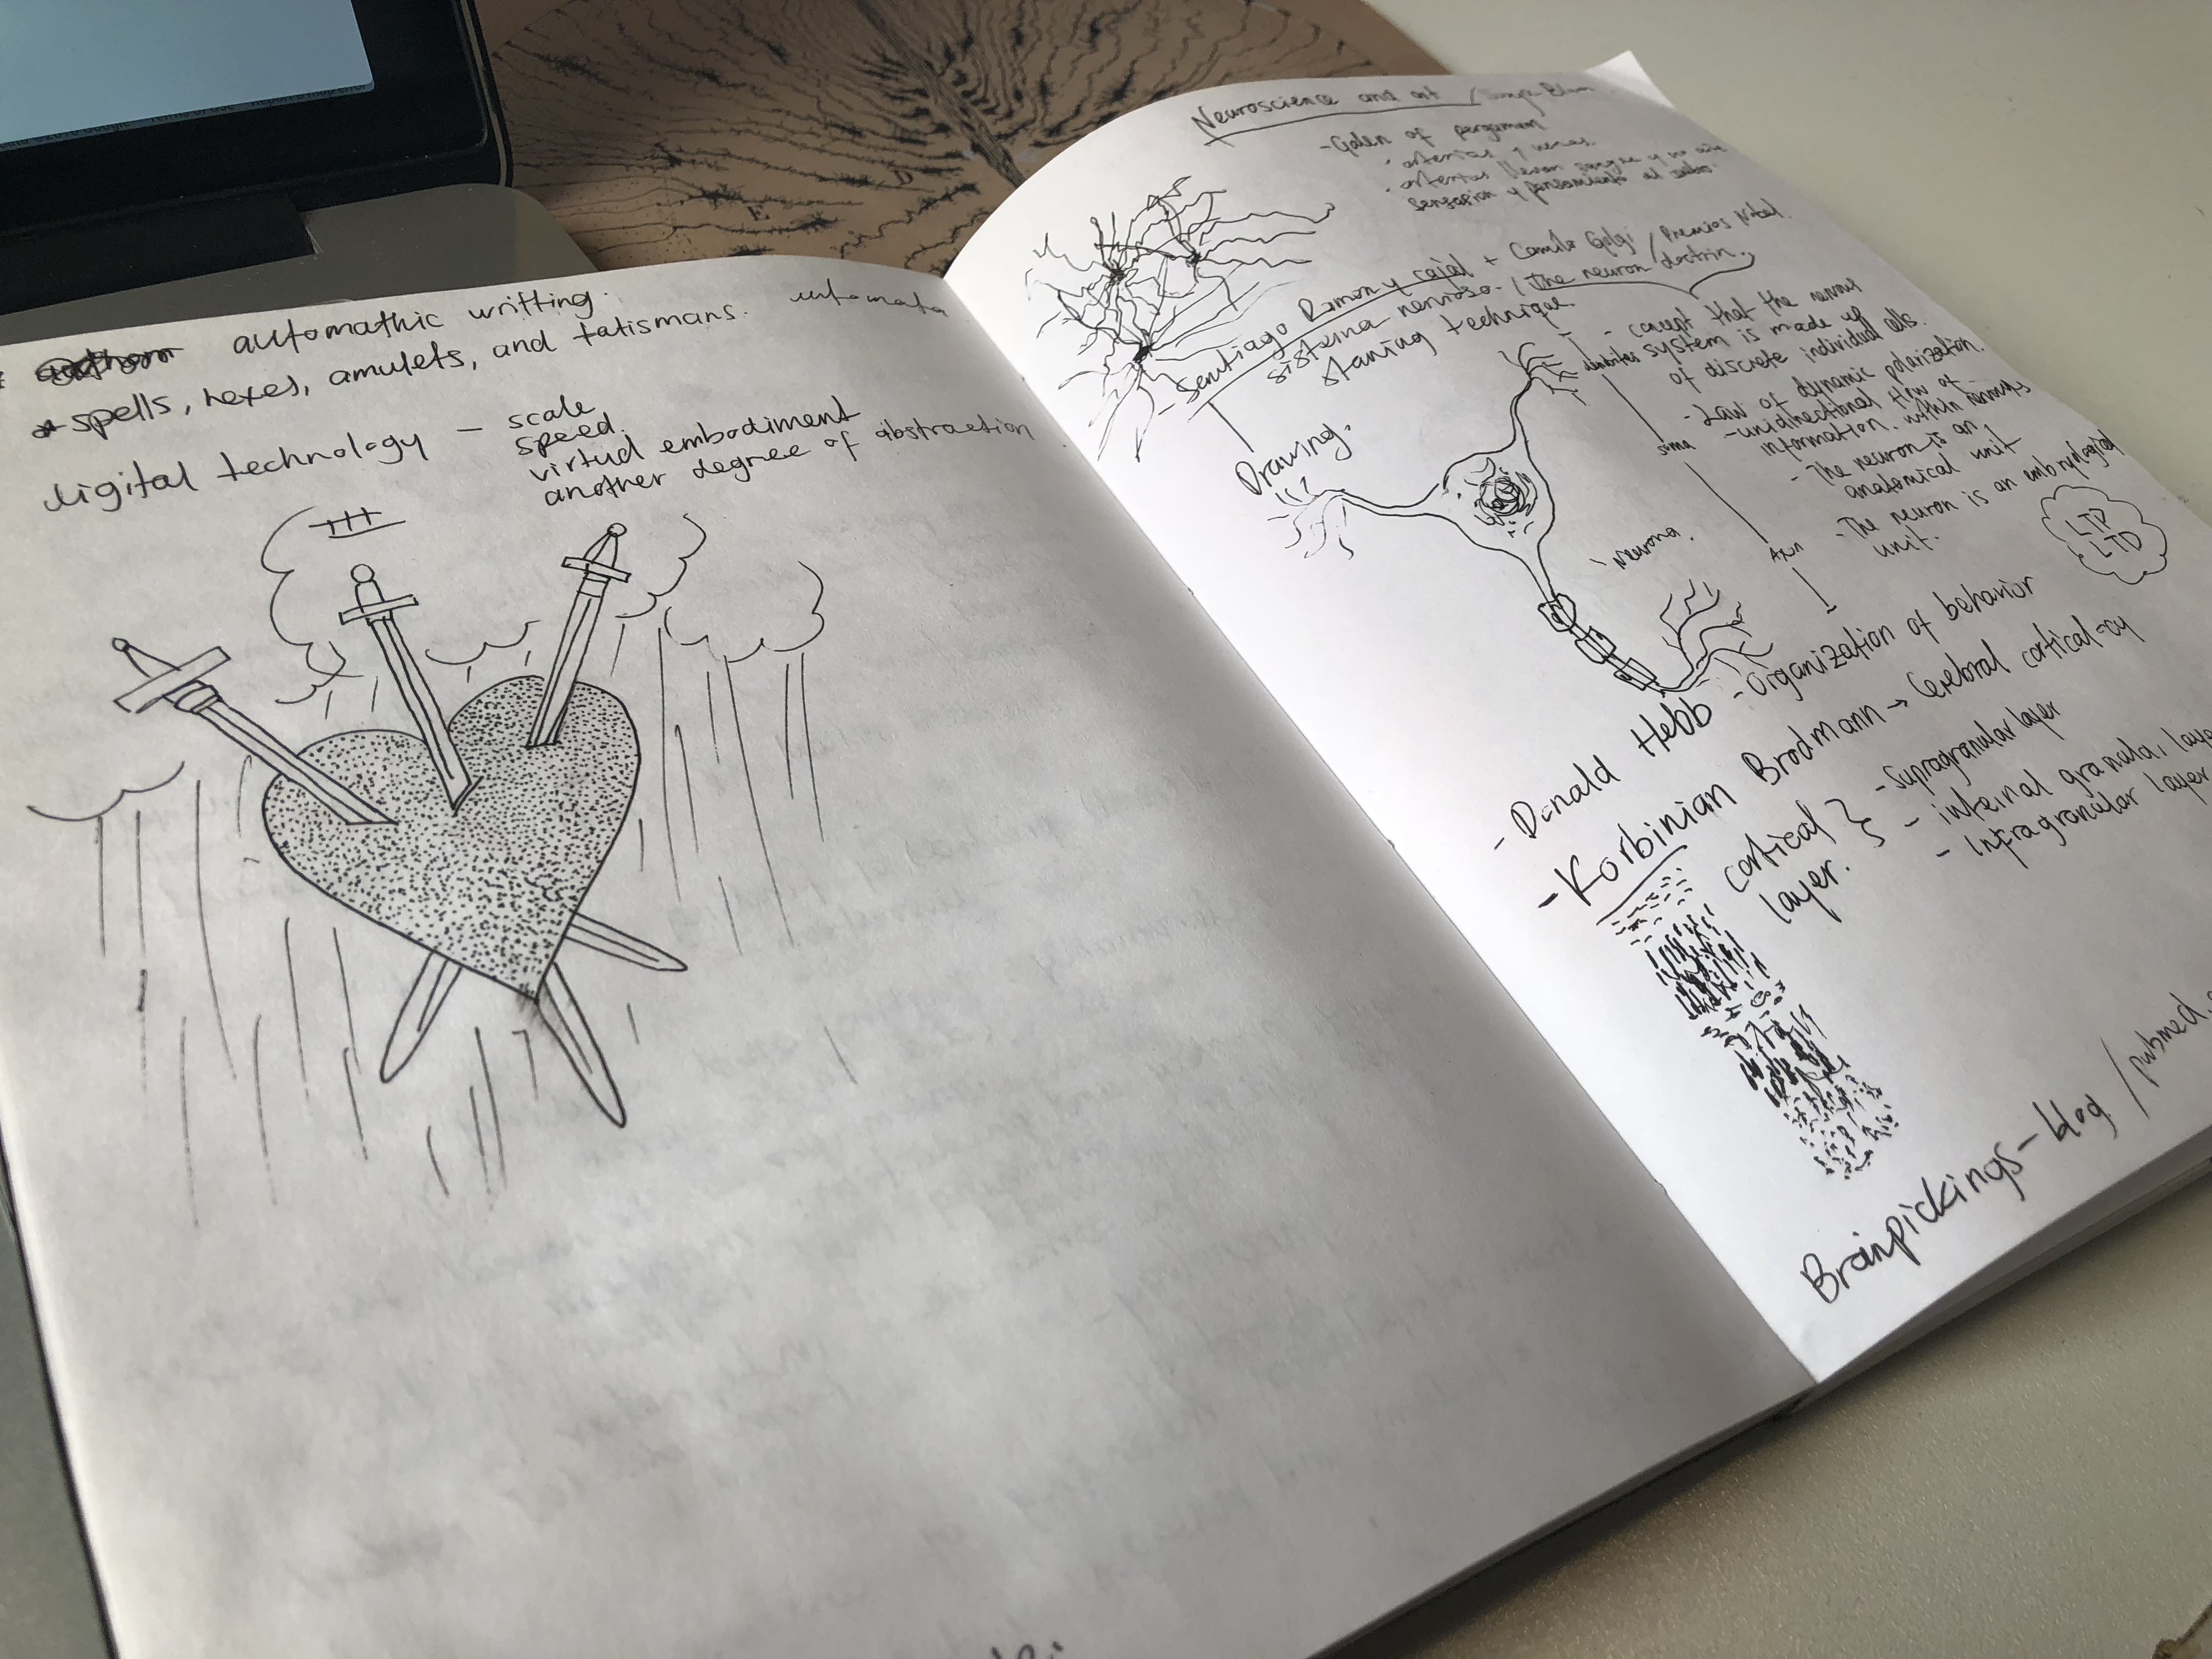 automathic writting.
automata
spells, hexes, amulets, and talismans.
digital technology — scale
speed.
virtual embodiment
another degree of abstraction
III
Neuroscience and art /
- Galen of pergamum
· arterias y venas.
· arterias llevan sangre y no aire
sensasion y pensamiento al
- Santiago Ramon y cajal + Camilo Golgi / Premios Nobel.
sistema nervioso. / The neuron doctrin.
staning technique.
- concept that the nervus
system is made up
of discrete individual cells.
- Law of dynamic polarization.
- unidirectional flow of
information. within
- The neuron is an
anatomical unit
- The neuron is an embryological
unit.
Drawing.
soma
Axon
neurona.
LTP
LTD
- Donald Hebb - Organization of behavior
- Korbinian Brodmann → Cerebral cortical-cy
cortical } - Supragranular layer
layer. - internal granular laye
- Infragranular layer
Brainpickings - blog / pubmed.